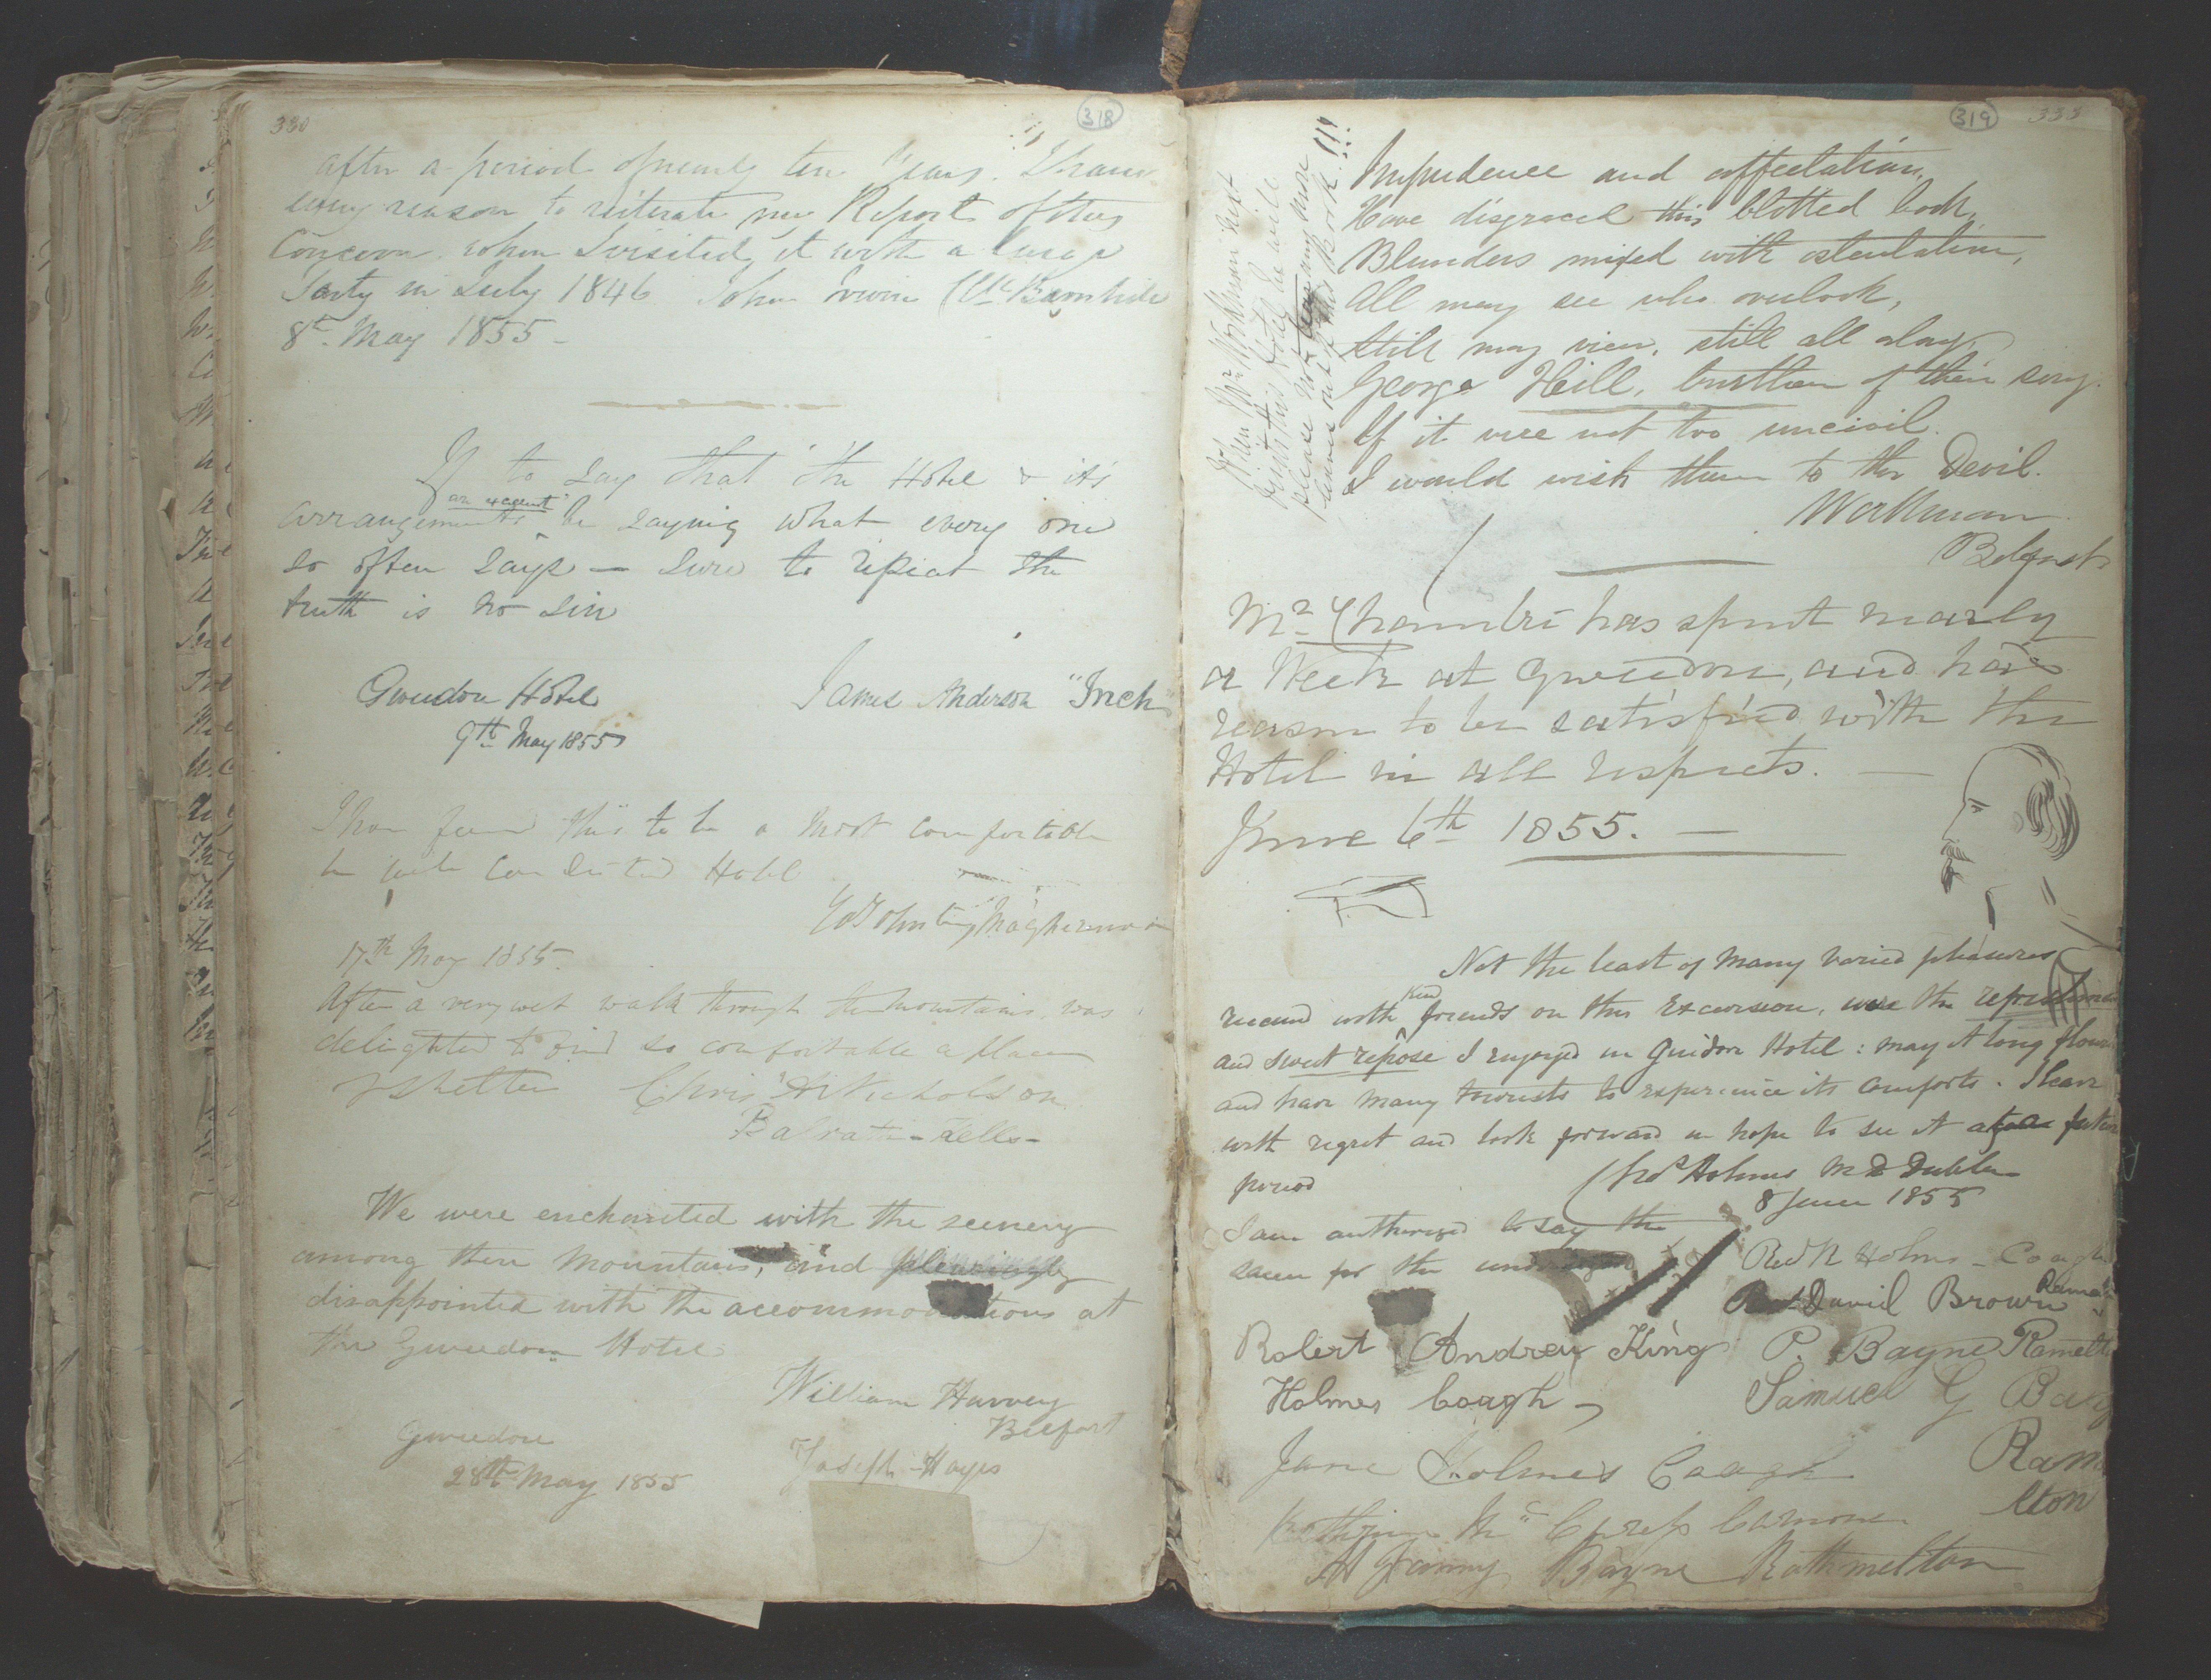 330
318
After a period of nearly ten Years. I have
every reason to reiterate my Report of this
Concern when I visited it with a large
Party in July 1846 John Irwin
8th May 1855 -
If to say that the Hotel & its
arrangements be saying what every one
an exagent
so often says — sure to repeat the
truth is no sin
Gweedore Hotel
James Anderson "Inch"
9th May 1855
I have found this to be a most comfortable
& well conducted Hotel
17th May 1855.
After a very wet walk through the mountains, was
delighted to find so comfortable a place
of shelter Chris Nicholson
Balrath - Kells -
We were enchanted with the scenery
among there mountains, and pleasingly
disappointed with the accommodations at
the Gweedore Hotel
William Harvey
Belfast
Gweedore
Joseph Hayes
28th May 1855
319
333
When Mr Workman next
visits this Hotel he will
please not tear any more
leaves out of this Book!!!
Impudence and affectation,
Have disgraced this blotted book,
Blunders mixed with ostentation,
All may see who overlook,
Still may view, still all along,
George Hill, burthen of their song.
If it were not too uncivil.
I would wish them to the Devil.
Workman
Belfast
Mr Chambré has spent nearly
a Week at Gweedore, and has
reason to be satisfied with the
Hotel in all respects. —
June 6th 1855. —
Not the least of many varied pleasures
received with kind friends on this Excursion, were the refreshment
and sweet repose I enjoyed in Guidore Hotel: may it long flourish
and have many tourists to experience its comforts. I leave
with regret and look forward in hope to see it at a future
period
Holmes MD Dublin
8 June 1855
I am authorized to say the
same for the undersigned
Revd Holmes - Coagh
Revd David Brown
Robert Andrew King
P. Bayne Ramelton
Holmes Coagh
Samuel G Bayne
Jane Holmes Coagh
Ram
elton
Fanny Bayne Rathmelton